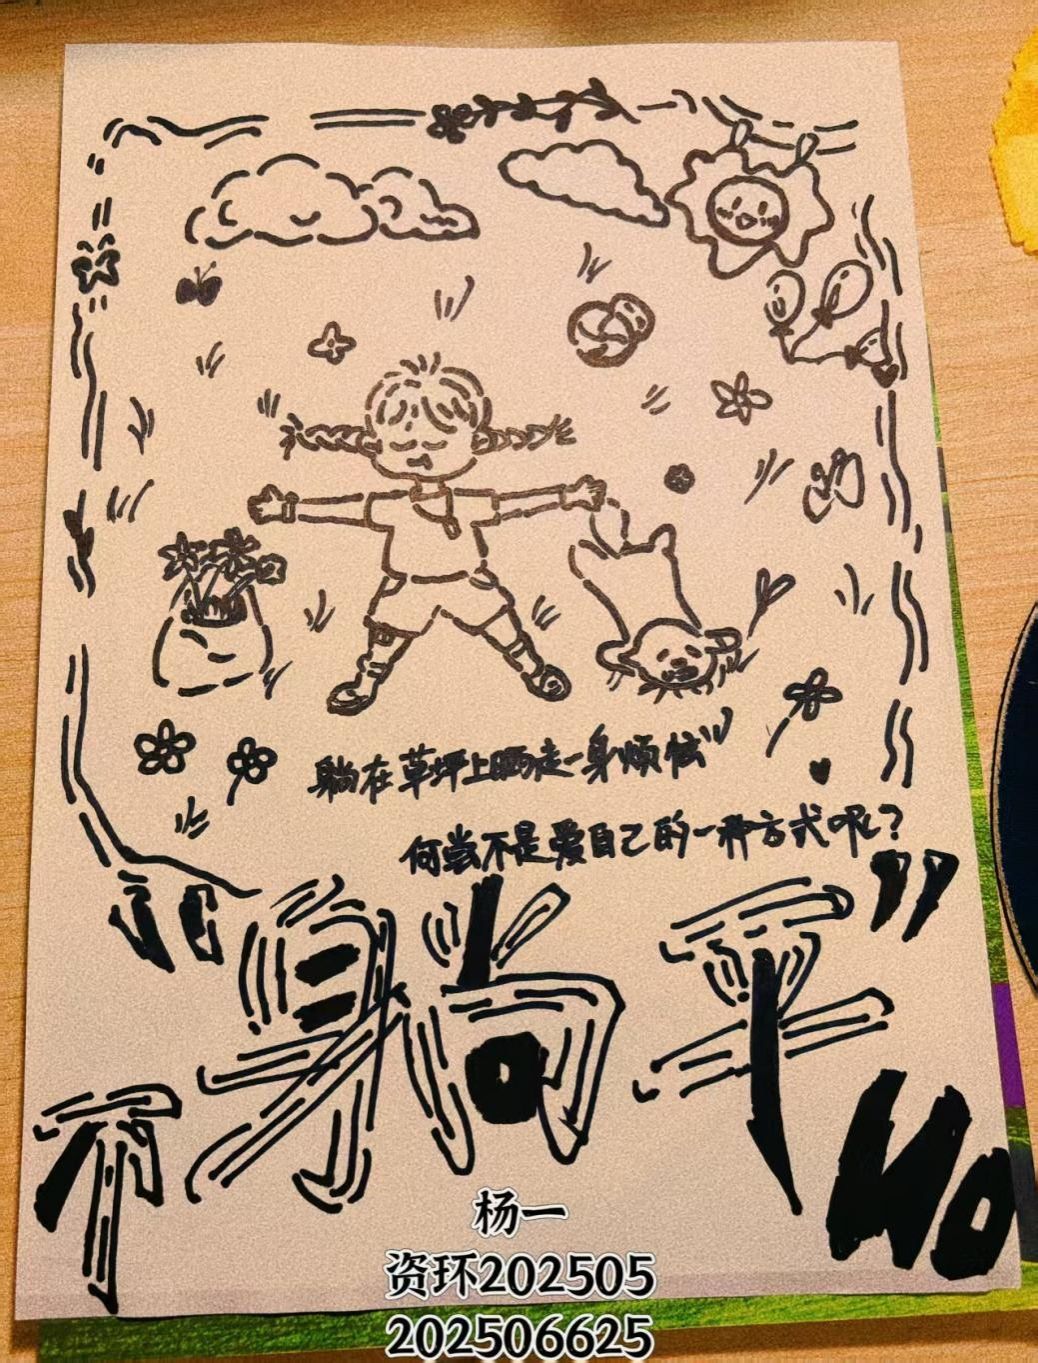 躺在草坪上晒走一身烦忧
何尝不是爱自己的一种方式呢？
"躺平"
不
No
杨一
资环202505
202506625